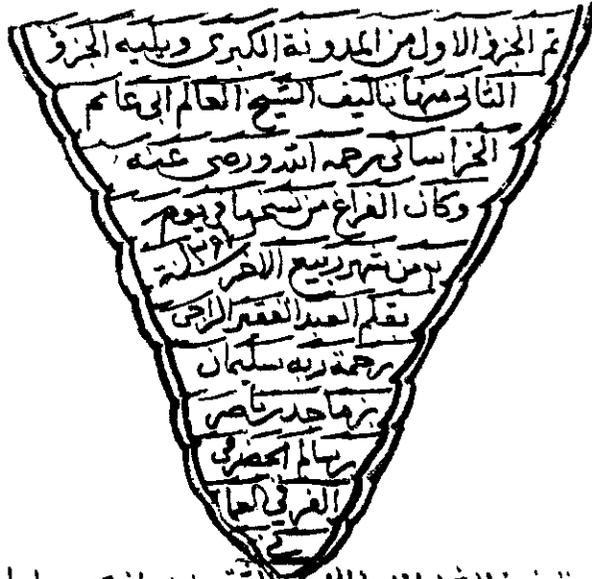 تم الجزؤ الاول من المدونة الكبرى ويليه الجزؤ
الثانى منها تاليف الشيخ العالم ابى غانم
الخراسانى رحمه الله ورضى عنه
وكان الفراغ من نسخها فى يوم
من شهر ربيع الاخر سنة
بقلم العبد الفقير الراجى
رحمة ربه سليمان
بن ماجد بن ناصر
بن سالم الحضرمى
الفرقي العما
ني